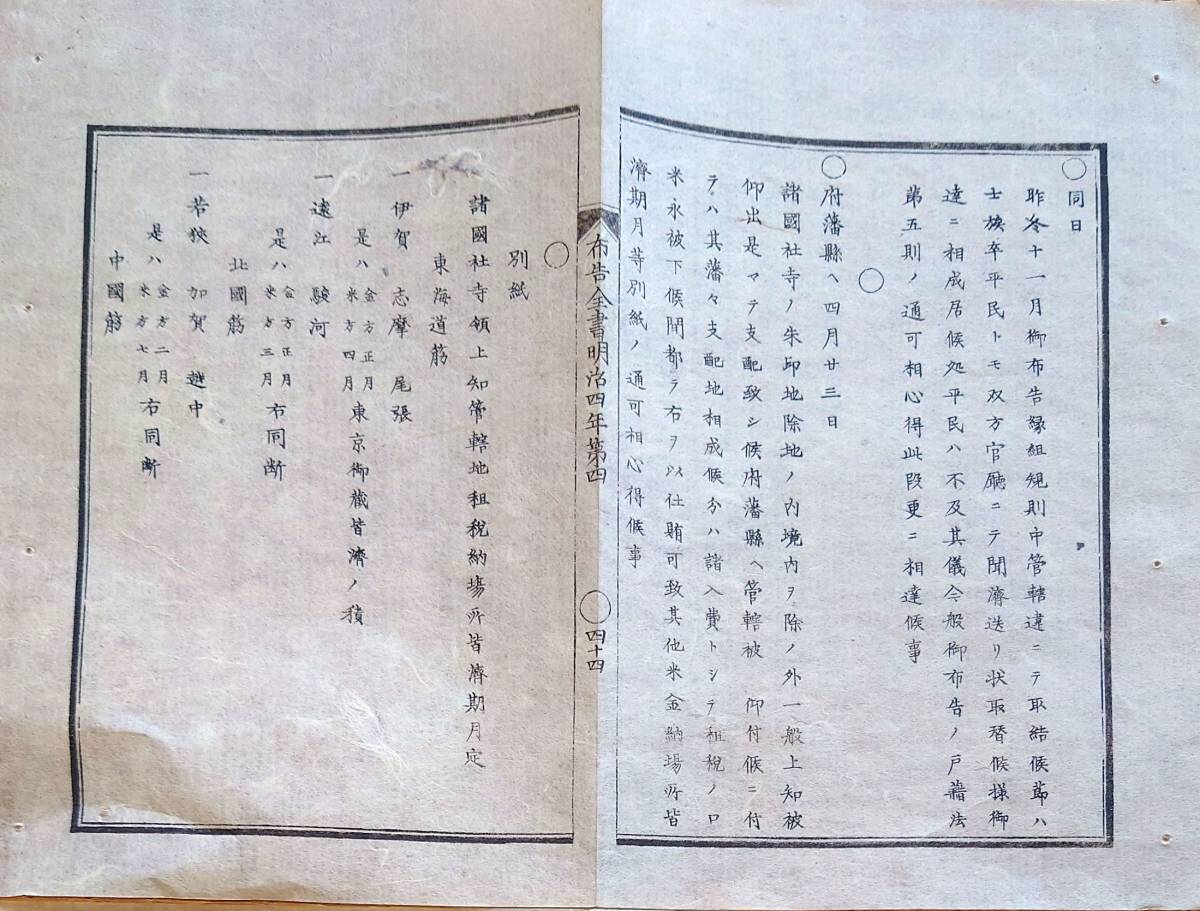 ◯同日
昨冬十一月御布告縁組規則中管轄違ニテ取結候節ハ
士族卒平民トモ双方官廳ニテ聞濟送リ状取替候様御
達ニ相成居候処平民ハ不及其儀今般御布告ノ戸籍法
第五則ノ通可相心得此段更ニ相達候事
◯
◯府藩縣ヘ四月廿三日
諸國社寺ノ朱印地除地ノ内境内ヲ除ノ外一般上知被
仰出是マテ支配致シ候府藩縣ヘ管轄被 仰付候ニ付
テハ其藩々支配地相成候分ハ諸入費トシテ租税ノ口
米永被下候間都テ右ヲ以仕賄可致其他米金納場所皆
濟期月等別紙ノ通可相心得候事
布告全書明治四年第四 ◯四十四
◯
別紙
諸國社寺領上知管轄地租税納場所皆濟期月定
東海道筋
一伊賀 志摩 尾張
是ハ 金方正月 米方四月 東京御藏皆濟ノ積
一遠江 駿河
是ハ 金方正月 米方三月 右同断
北國筋
一若狹 加賀 越中
是ハ 金方二月 米方七月 右同断
中國筋